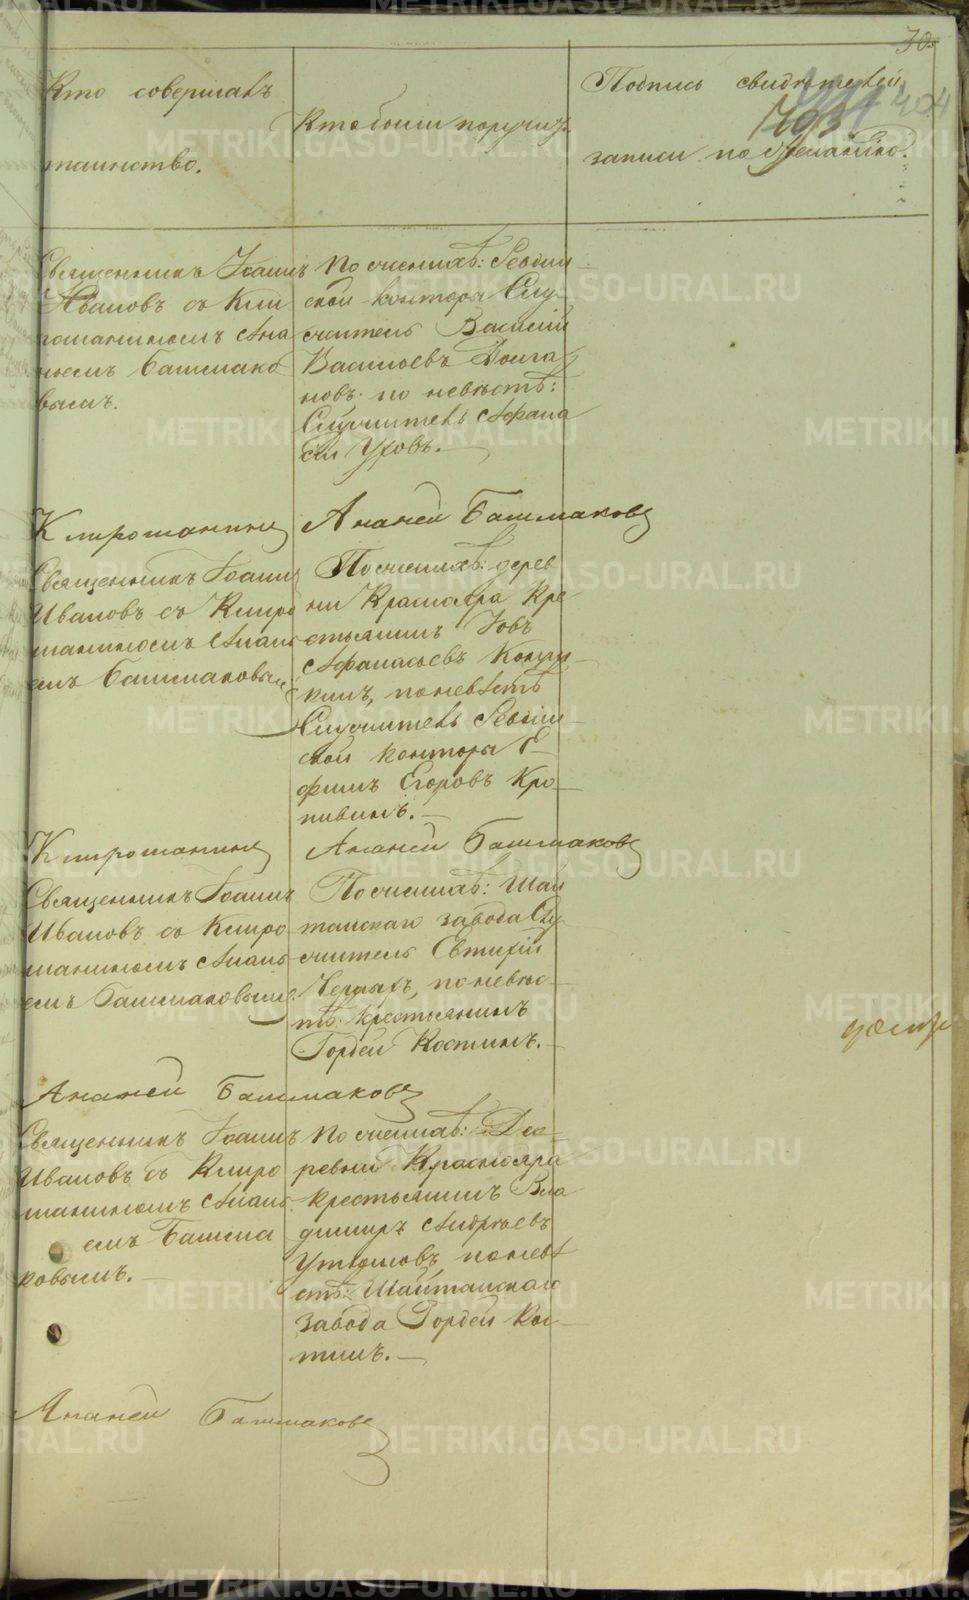 70.
Кто совершалъ
таинство.
Кто были поручит.
Подпись свидѣтелей
записи по желанію.
703
404
Священникъ Іоаннъ
Ивановъ съ Кли
рошаниномъ Ана
ніемъ Башмако
вымъ.
По женихѣ: Ревдин
ской конторы Слу
житель Василій
Васильевъ Долга
новъ. по невѣстѣ:
Служитель Афана
сій Уховъ.
Клирошанинъ Ананей Башмаковъ
Священникъ Іоаннъ
Ивановъ съ Клиро
шаниномъ Анані
емъ Башмаковымъ
По женихѣ: дерев
ни Краснояра Кре
стьянинъ Іовъ
Афанасьевъ
кинъ, по невѣстѣ
Служитель Ревдин
ской конторы Е
фимъ Егоровъ Кро
пивинъ.
Клирошанинъ Ананей Башмаковъ
Священникъ Іоаннъ
Ивановъ съ Клиро
шаниномъ Анані
емъ Башмаковымъ.
По женихѣ: Шай
танскаго завода Слу
житель Евтихій
по невѣс
тѣ: крестьянинъ
Гордей Костинъ.
Ананей Башмаковъ
Священникъ Іоаннъ
Ивановъ съ Клиро
шаниномъ Анані
емъ Башма
ковымъ.
По женихѣ: Де
ревни Краснояра
крестьянинъ Вла
димиръ Андреевъ
по невѣ
стѣ: Шайтанскаго
завода Гордей Кос
тинъ.
Ананей Башмаковъ
METRIKI.GASO-URAL.RU